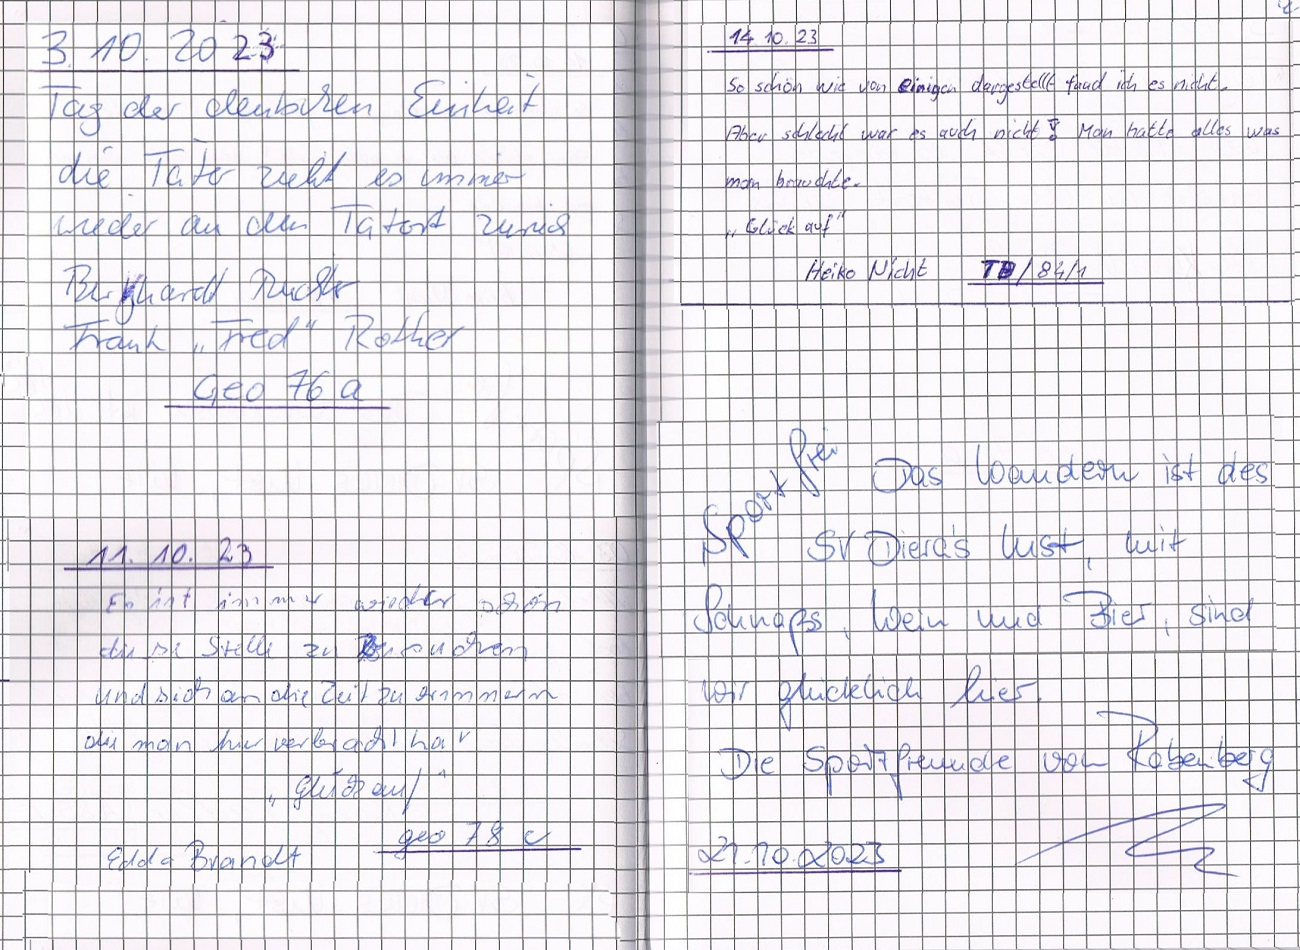 3. 10. 2023
Tag der deutschen Einheit
die Täter zieht es immer
wieder an den Tatort zurück
Burghardt
Frank „Fred" Rother
Geo 76 a
11. 10. 23
Es ist immer wieder schön
diese Stelle zu Besuchen
und sich an die Zeit zu erinnern
die man hier verbracht hat
„Glück auf"
geo 78 c
Edda Brandt
14. 10. 23
So schön wie von einigen dargestellt fand ich es nicht.
Aber schlecht war es auch nicht! Man hatte alles was
man brauchte.
„Glück auf"
Heiko Nicht TB/84/1
Sport frei
Das Wandern ist des
SV Diera's Lust, mit
Schnaps, Wein und Bier, sind
wir glücklich hier.
Die Sportfreunde vom Rabenberg
21.10.2023